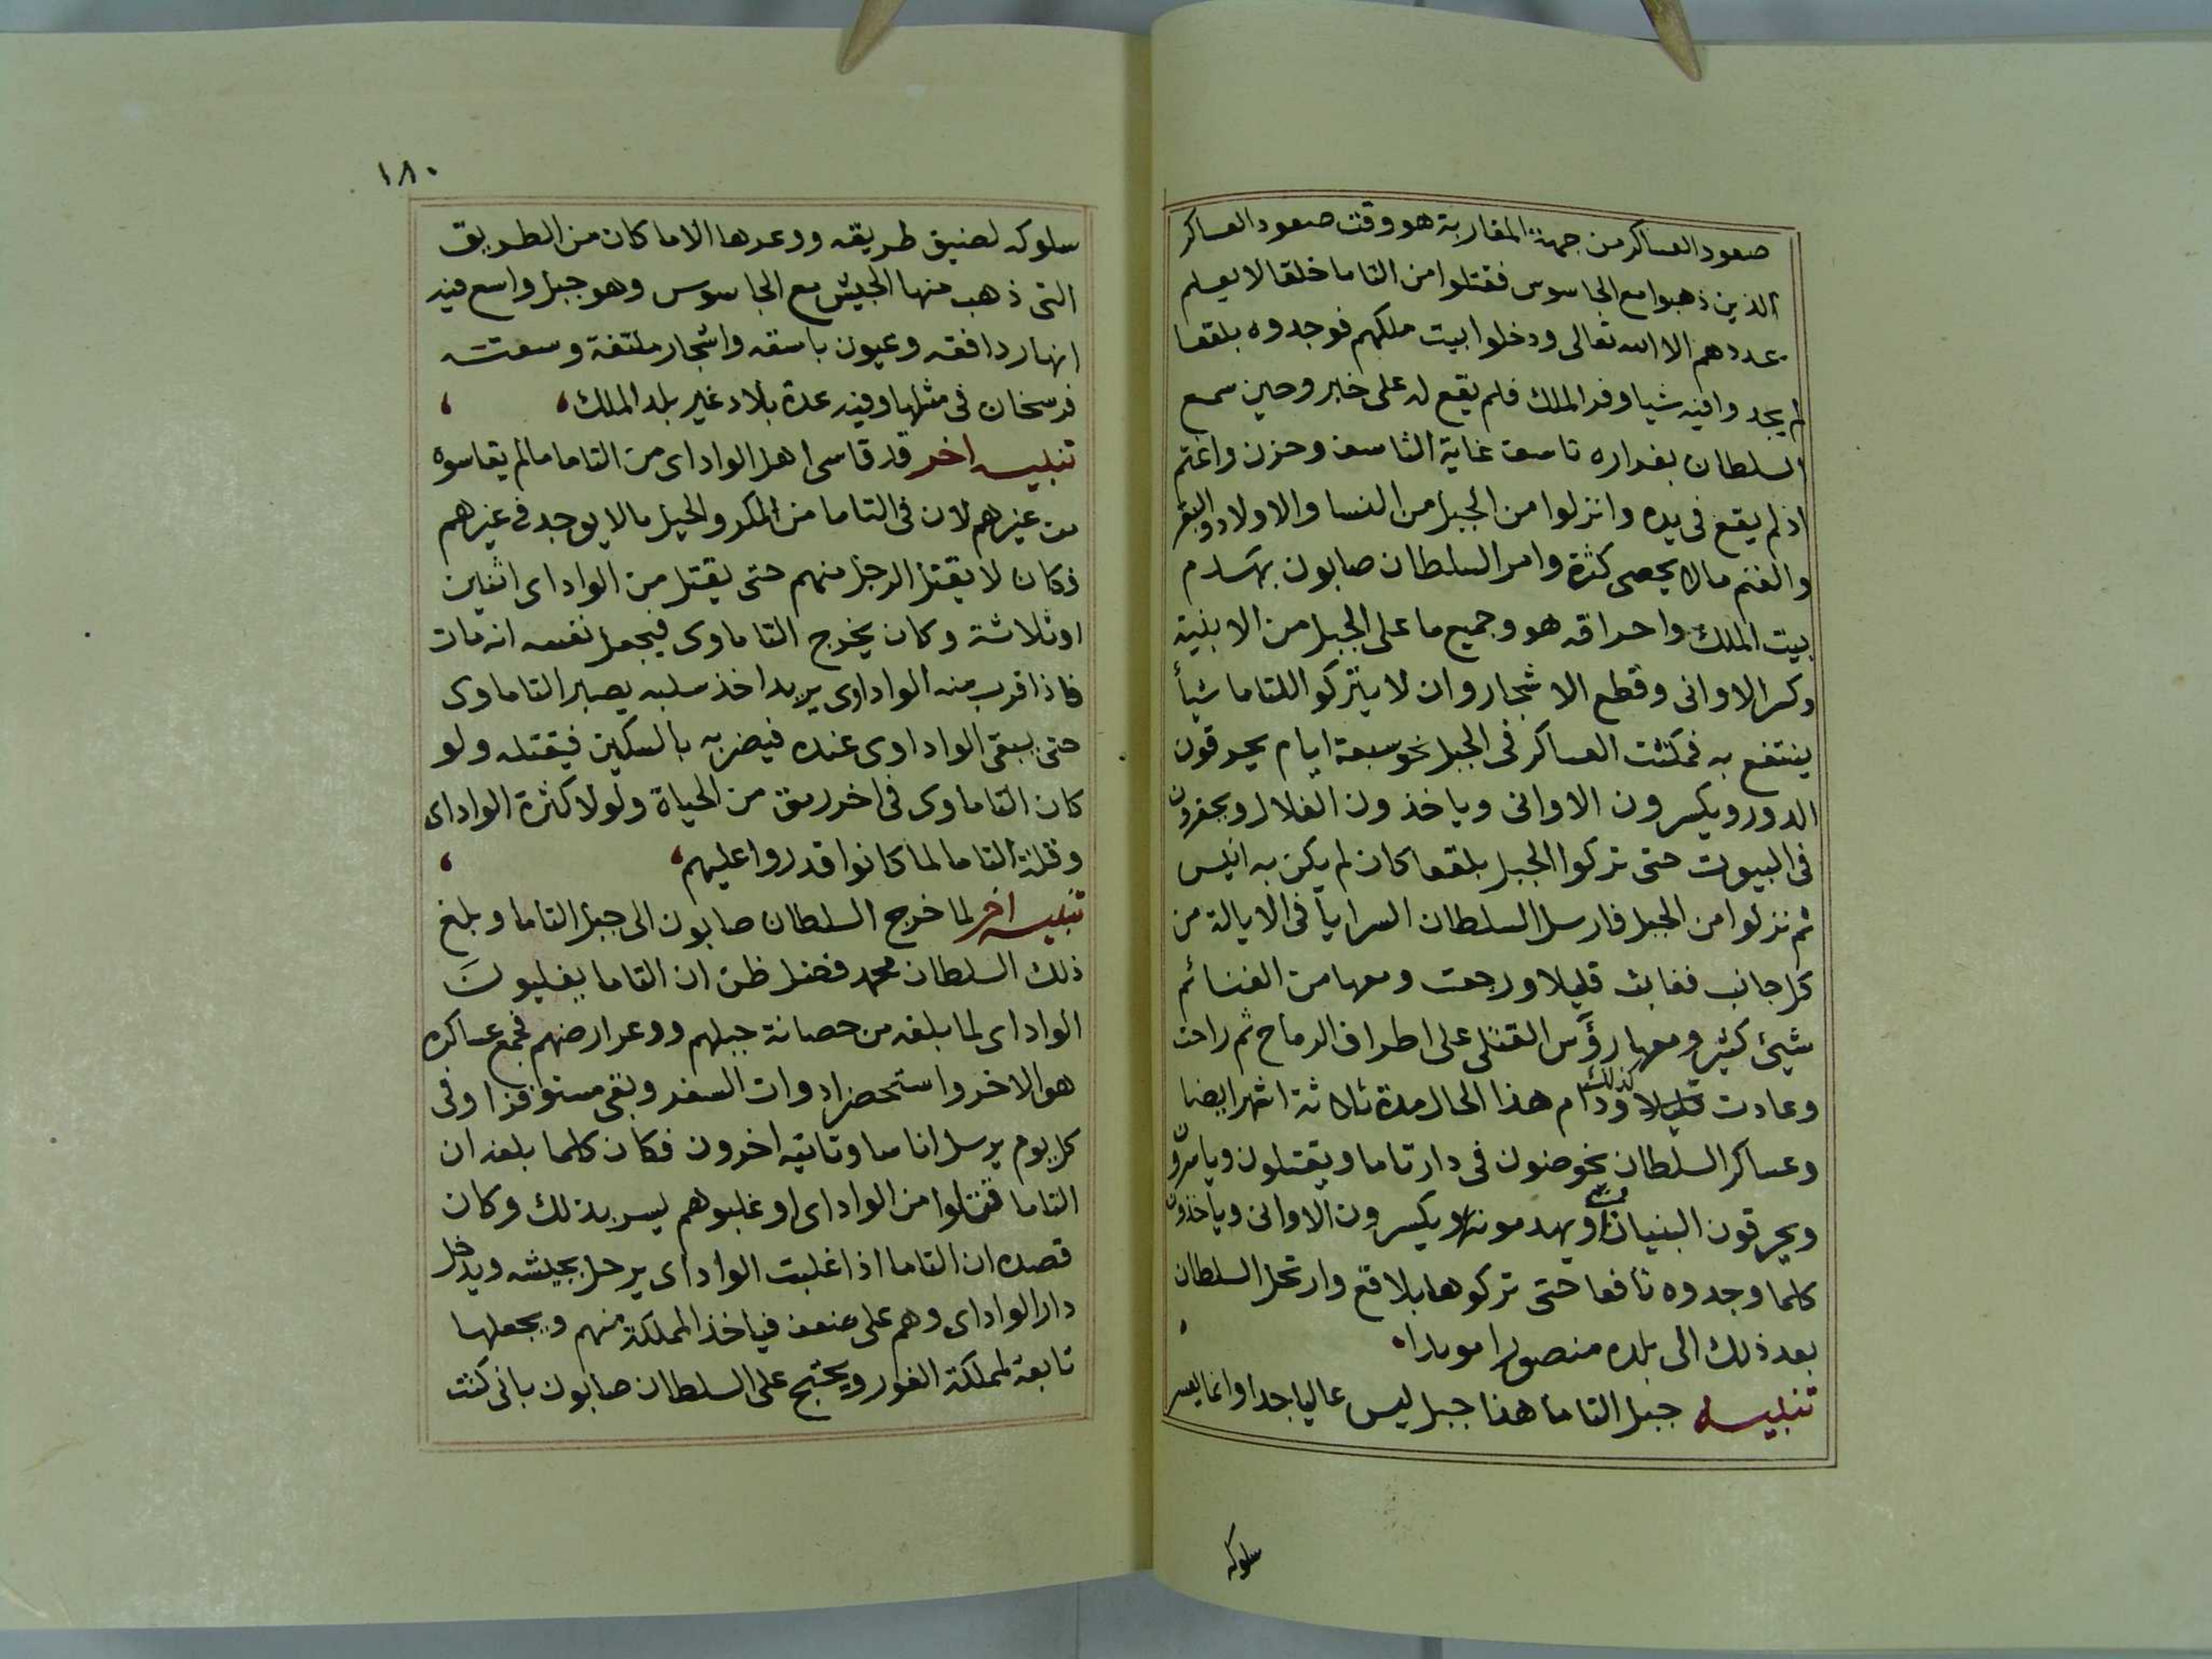 صعود العساكر من جهة المغاربة هو وقت صعود العساكر
الذين ذهبوا مع الجاسوس فقتلوا من التاما خلقا لا يعلم
عددهم الا الله تعالى ودخلوا بيت ملكهم فوجدوه بلقعا
لم يجدوا فيه شيا وفر الملك فلم يقع له على خبر وحين سمع
السلطان بفراره تاسف غاية التاسف وحزن واغتم
اذ لم يقع فى يده وانزلوا من الجبل من النسا والاولاد والبقر
والغنم مالا يحصى كثرة وامر السلطان صابون بهدم
بيت الملك واحراقه هو وجميع ما على الجبل من الابنية
وكسر الاوانى وقطع الاشجار وان لا يتركوا للتاما شيأ
ينتفع به فمكثت العساكر فى الجبل نحو سبعة ايام يحرقون
الدور ويكسرون الاوانى وياخذون الغلال ويحفرون
فى البيوت حتى تركوا الجبل بلقعا كان لم يكن به انيس
ثم نزلوا من الجبل فارسل السلطان السرايا فى الايالة من
كل جانب فغابت قليلا ورجعت ومعها من الغنائم
شيئ كثير ومعها رؤس القتلى على اطراف الرماح ثم راحت
وعادت كذلك ودام هذا الحال مدة ثلاثة اشهر ايضا
وعساكر السلطان يخوضون فى دار تاما ويقتلون وياسرون
ويحرقون البنيان ويهدمونه ويكسرون الاوانى وياخذون
كلما وجدوه نافعا حتى تركوها بلاقع وارتحل السلطان
بعد ذلك الى بلده منصورا مويدا
تنبيه جبل التاما هذا جبل ليس عاليا جدا وانما يعسر
سلوكه
١٨٠
سلوكه لضيق طريقه ووعرها الا ما كان من الطريق
التى ذهب منها الجيش مع الجاسوس وهو جبل واسع فيه
انهار دافقه وعيون باسقه واشجار ملتفة وسعته
فرسخان فى مثلها وفيه عدة بلاد غير بلد الملك
تنبيه اخر قد قاسى اهل الواداى من التاما ما لم يقاسوه
من غيرهم لان فى التاما من المكر والحيل مالا يوجد فى غيرهم
فكان لا يقتل الرجل منهم حتى يقتل من الواداى اثنين
او ثلاثة وكان يخرج التاماوى فيجعل نفسه انه مات
فاذا قرب منه الواداوى يريد اخذ سلبه يصبر التاماوى
حتى يبقى الواداوى عنده فيضربه بالسكين فيقتله ولو
كان التاماوى فى اخر رمق من الحياة ولولا كثرة الواداى
وقلة التاما لما كانوا قدروا عليهم
تنبيه اخر لما خرج السلطان صابون الى جبل التاما وبلغ
ذلك السلطان محمد فضل ظن ان التاما يغلبون
الواداى لما بلغه من حصانة جبلهم ووعر ارضهم فجمع عساكره
هو الاخر واستحضر ادوات السفر وبقى مستوفزا وفى
كل يوم يرسل اناسا وتاتيه اخرون فكان كلما بلغه ان
التاما قتلوا من الواداى او غلبوهم يسر بذلك وكان
قصده ان التاما اذا غلبت الواداى يرحل بجيشه ويدخل
دار الواداى وهم على ضعف فياخذ المملكة منهم ويجعلها
تابعة لمملكة الفور ويحتج على السلطان صابون بانى كنت